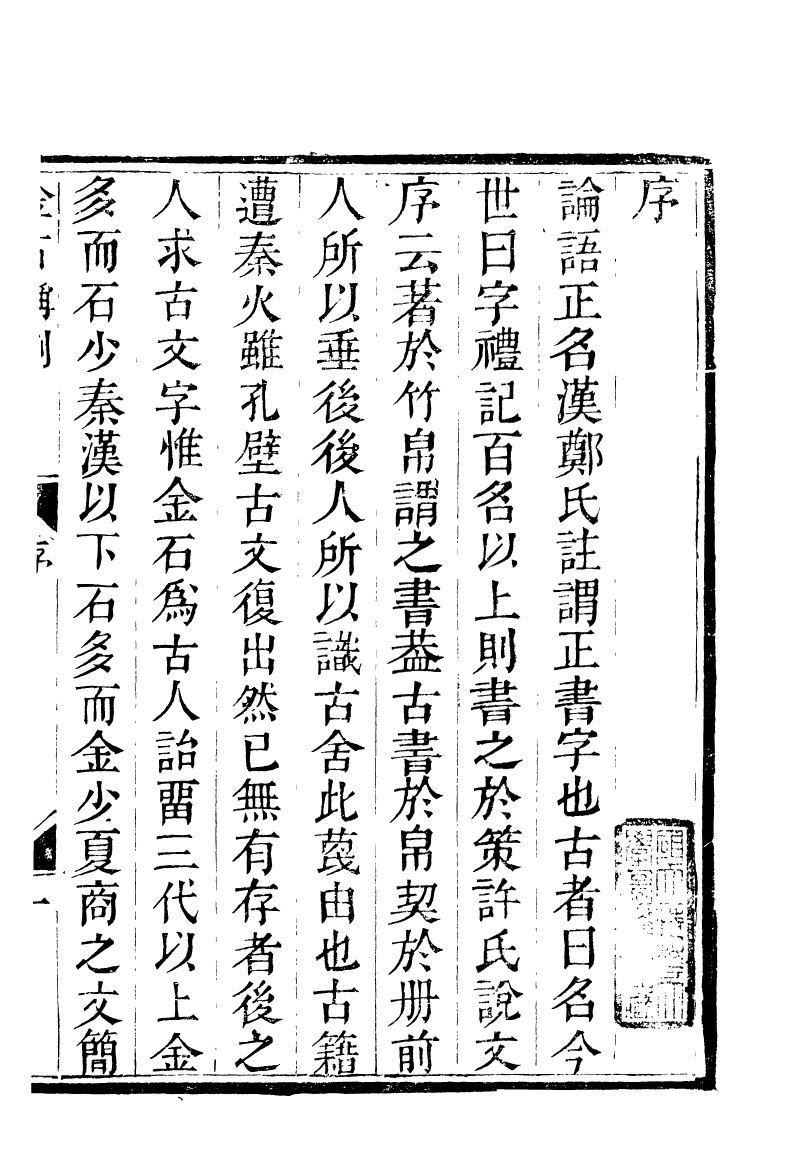 序
論語正名漢鄭氏註謂正書字也古者曰名今
世曰字禮記百名以上則書之於策許氏說文
序云著於竹帛謂之書葢古書於帛契於册前
人所以垂後後人所以識古舍此蔑由也古籍
遭秦火雖孔壁古文復出然已無有存者後之
人求古文字惟金石爲古人詒畱三代以上金
多而石少秦漢以下石多而金少夏商之文簡
序
一